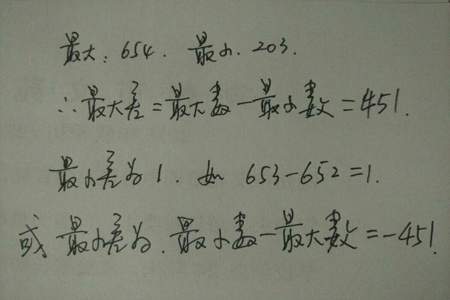 最大：654．最小．203．
∴最大差＝最大数－最小数＝451．
最小差为1．如 653－652＝1．
或 最小差为．最小数－最大数＝－451．